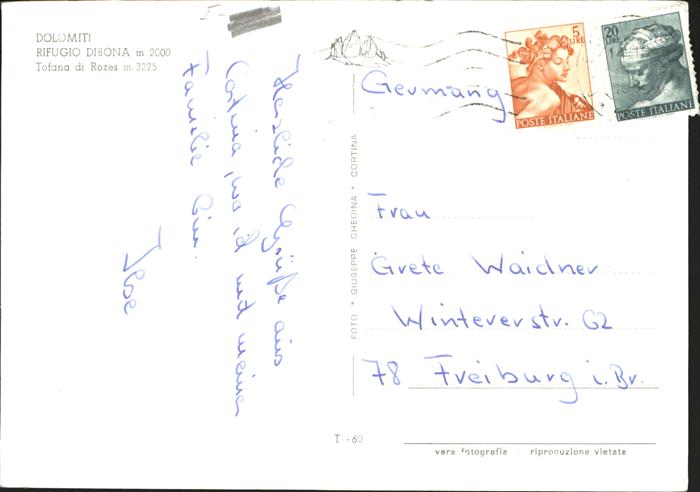 DOLOMITI
RIFUGIO DIBONA m 2000
Tofana di Rozes m. 3225
I-
Herzliche Grüße aus
Cortina, wo ich mit meiner
Familie bin.
Ilse
FOTO * GIUSEPPE GHEDINA * CORTINA
5
LIRE
POSTE ITALIANE
20
LIRE
POSTE ITALIANE
Germany
Frau
Grete Waidner
Wintererstr. 62
78 Freiburg i. Br.
T - 60
vera fotografia riproduzione vietata